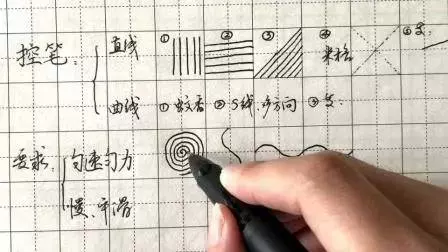 控笔: 直线 ① ② ③ ④ 米格 ⑤
曲线 ① 蚊香 ② S线 多方向 ③
要求: 匀速匀力
慢、平滑